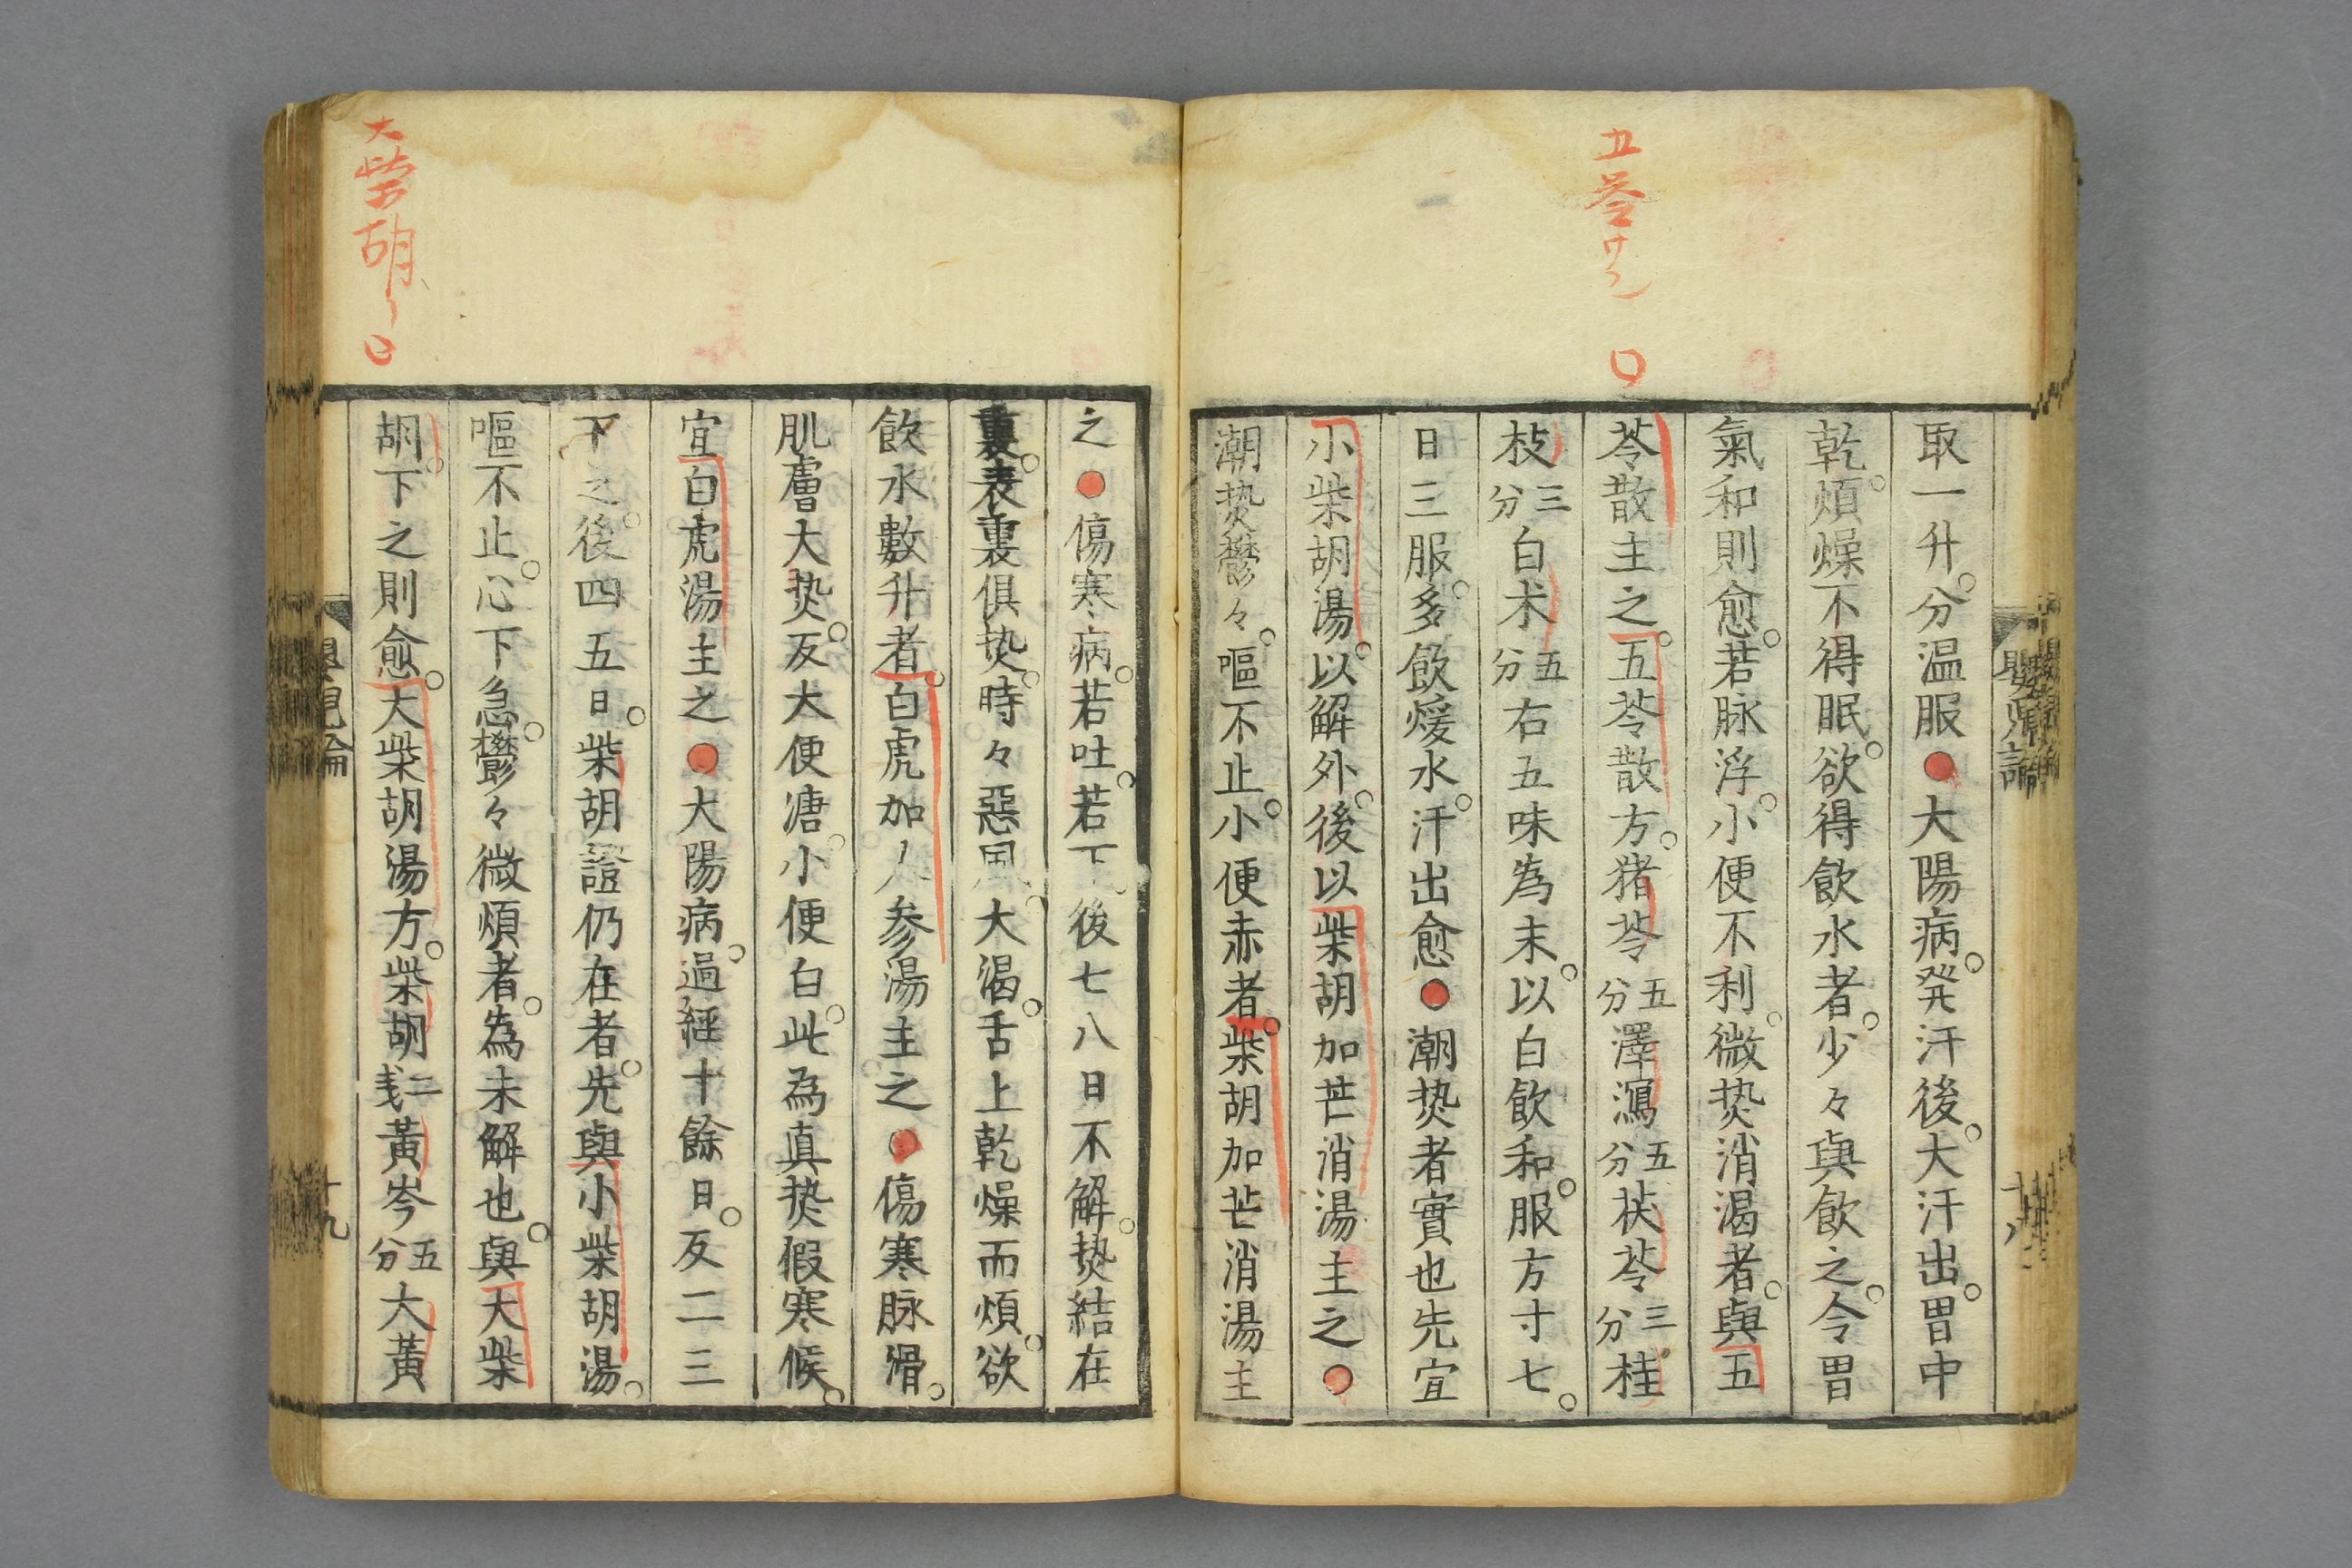 五苓サン
取一升。分温服●大陽病。発汗後。大汗出。胃中
乾。煩燥不得眠。欲得飲水者。少々與飲之。令胃
氣和則愈。若脉浮。小便不利。微热消渴者。與五
苓散主之。五苓散方。猪苓五分澤瀉五分茯苓三分桂
枝三分白朮五分右五味為末。以白飲和。服方寸七。
日三服。多飲煖水。汗出愈●潮热者實也先宜
小柴胡湯。以解外。後以柴胡加芒消湯主之●
潮热鬱々。嘔不止。小便赤者。柴胡加芒消湯主
大柴胡
之●傷寒病。若吐。若下。後七八日不解。热結在
裏。表裏俱热。時々惡風。大渴。舌上乾燥而煩。欲
飲水數升者。白虎加人参湯主之●傷寒脉滑。
肌膚大热。反大便溏。小便白。此為真热假寒候。
宜白虎湯主之●大陽病。過經十餘日。反二三
下之。後四五日。柴胡證仍在者。先與小柴胡湯。
嘔不止。心下急。鬱々微煩者。為未解也。與大柴
胡。下之則愈。大柴胡湯方。柴胡二戔黃岑五分大黃
十九